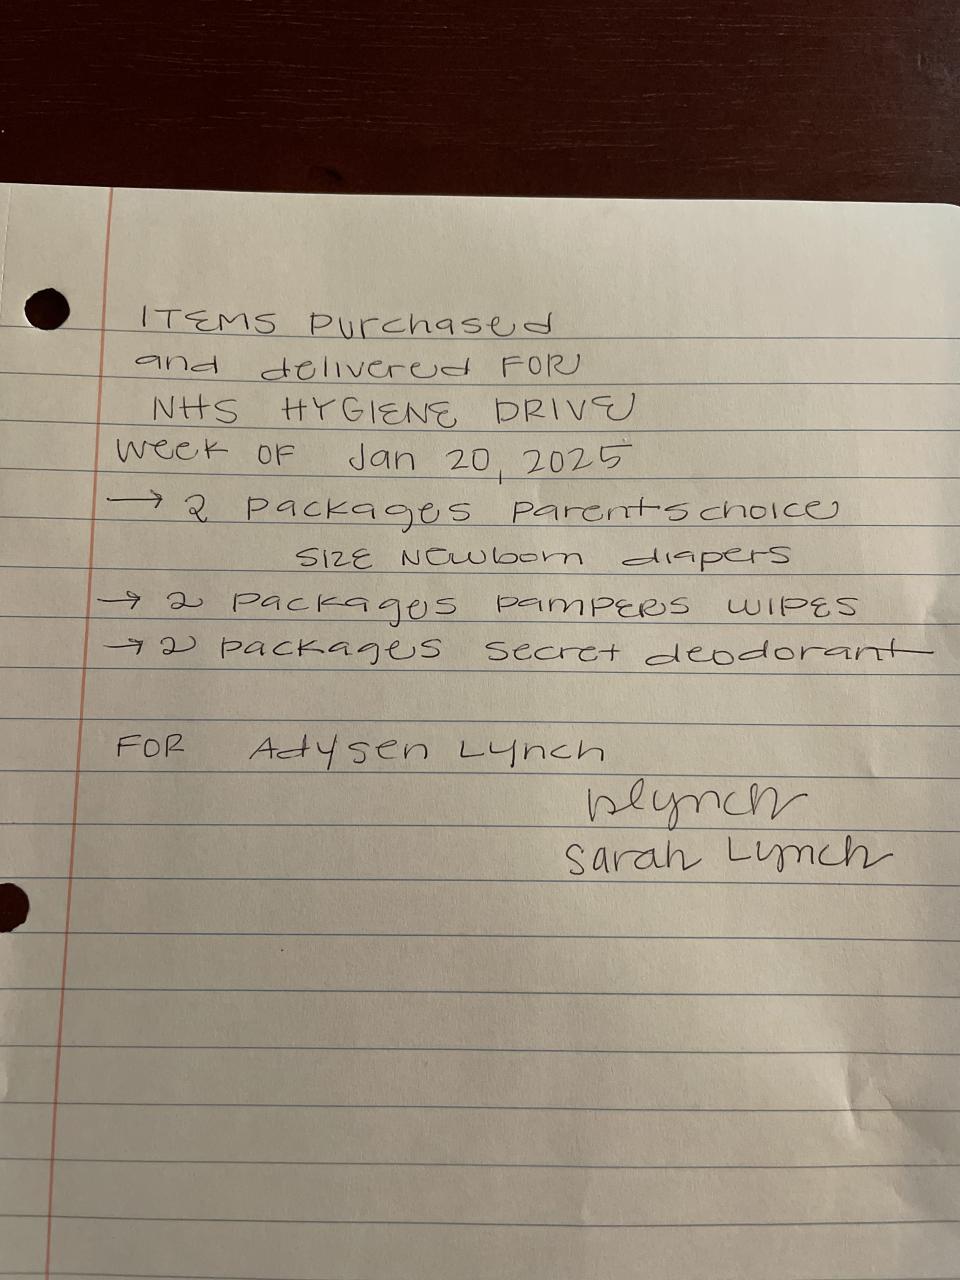 ITEMS Purchased
and delivered FOR
NHS HYGIENE DRIVE
week OF Jan 20, 2025
→ 2 packages parentschoice
SIZE Newborn diapers
→ 2 packages pampers wipes
→ 2 packages secret deodorant
FOR Adysen Lynch
slynch
Sarah Lynch